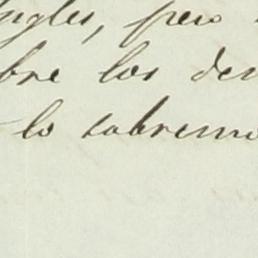 ngles, pero
bre los de
lo sabremo